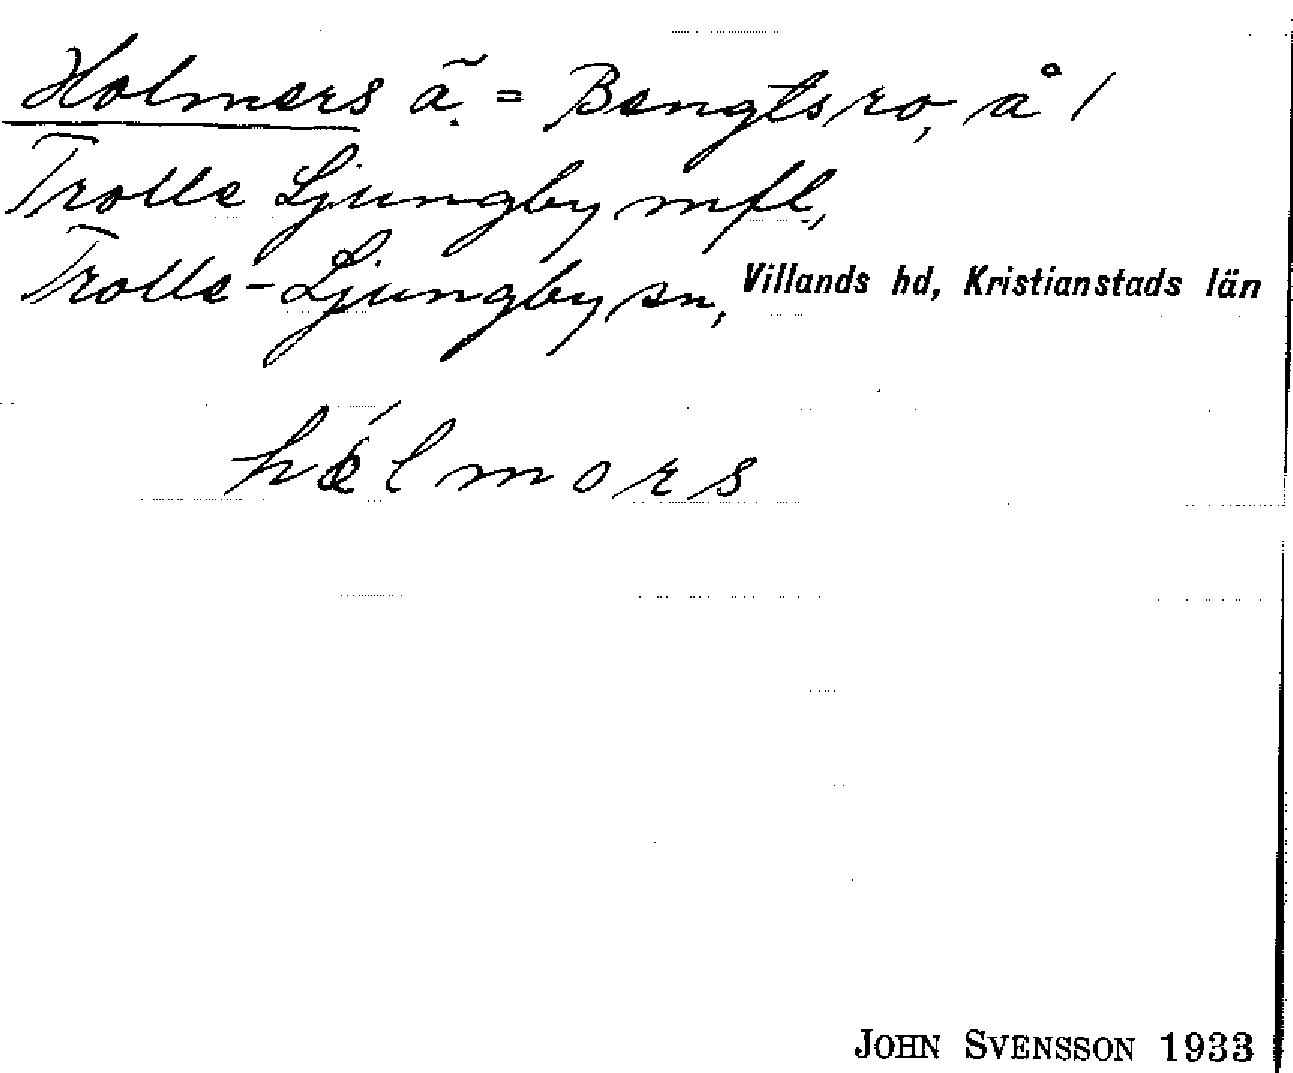 Holmers ä. = Bengtsro, å /
Trolle Ljungby mfl.,
Trolle-Ljungby sn, Villands hd, Kristianstads län
hólmors
JOHN SVENSSON 1933